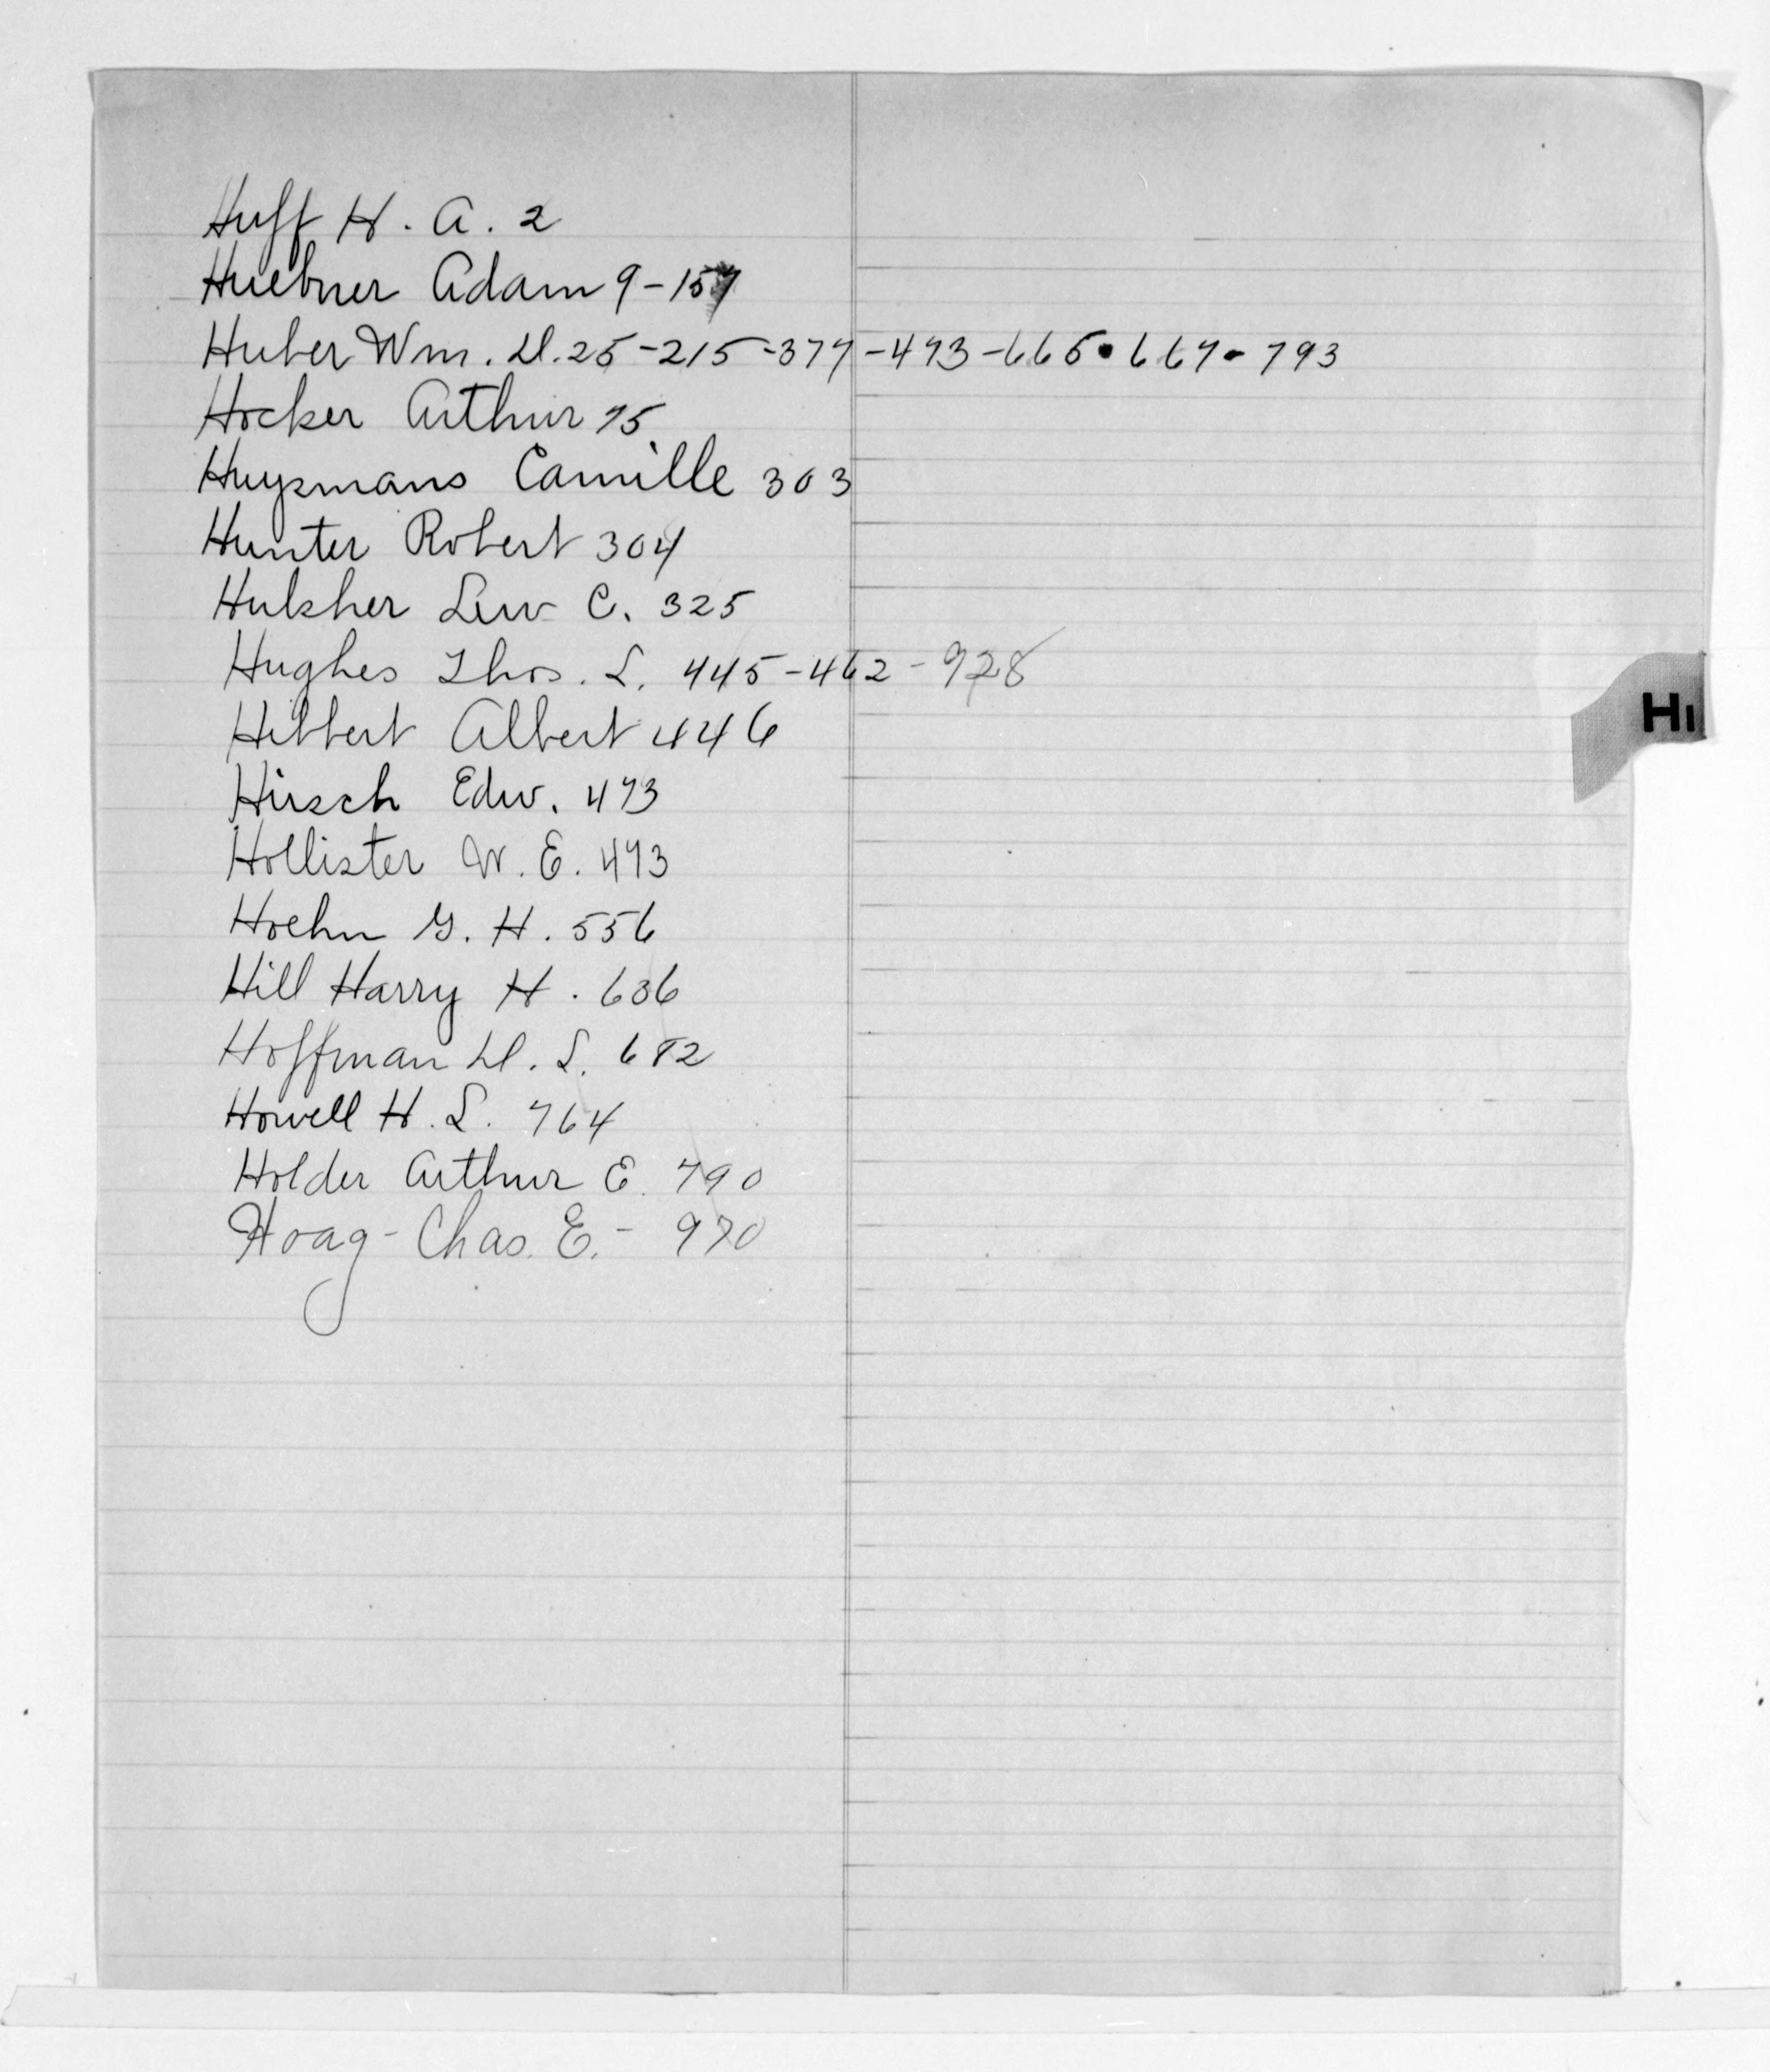 Huff H. A. 2
Huebner Adam 9-157
Huber Wm. D. 25-215-377-473-665-667-793
Hocker Arthur 75
Huysmans Camille 303
Hunter Robert 304
Hulsher Lew C. 325
Hughes Thos. L. 445-462-928
Hibbert Albert 446
Hirsch Edw. 473
Hollister W. E. 473
Hoehn G. H. 556
Hill Harry H. 636
Hoffman D. L. 682
Howell H. L. 764
Holder Arthur E. 790
Hoag-Chas. E.- 970
HI